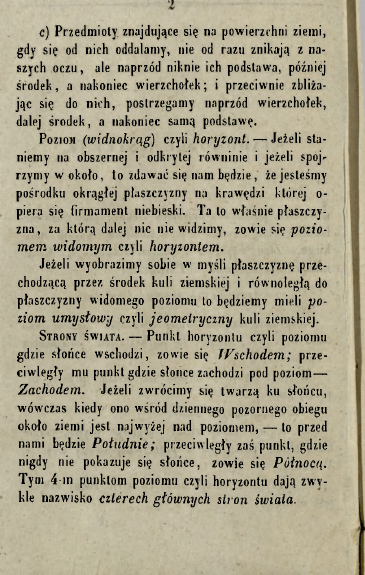 2
c) Przedmioty znajdujące się na powierzchni ziemi,
gdy się od nich oddalamy, nie od razu znikają z na-
szych oczu, ale naprzód niknie ich podstawa, później
środek, a nakoniec wierzchołek; i przeciwnie zbliża-
jąc się do nich, postrzegamy naprzód wierzchołek,
dalej środek, a nakoniec samą podstawę.
Poziom (widnokrąg) czyli horyzont. — Jeżeli sta-
niemy na obszernej i odkrytej równinie i jeżeli spoj-
rzymy w około, to zdawać się nam będzie, że jesteśmy
pośrodku okrągłej płaszczyzny na krawędzi której o-
piera się firmament niebieski. Ta to właśnie płaszczy-
zna, za którą dalej nic nie widzimy, zowie się pozio-
mem widomym czyli horyzontem.
Jeżeli wyobrazimy sobie w myśli płaszczyznę prze-
chodzącą przez środek kuli ziemskiej i równoległą do
płaszczyzny widomego poziomu to będziemy mieli po-
ziom umysłowy czyli jeometryczny kuli ziemskiej.
Strony świata. — Punkt horyzontu czyli poziomu
gdzie słońce wschodzi, zowie się Wschodem; prze-
ciwległy mu punkt gdzie słońce zachodzi pod poziom—
Zachodem. Jeżeli zwrócimy się twarzą ku słońcu,
wówczas kiedy ono wśród dziennego pozornego obiegu
około ziemi jest najwyżej nad poziomem, — to przed
nami będzie Południe; przeciwległy zaś punkt, gdzie
nigdy nie pokazuje się słońce, zowie się Północą.
Tym 4-m punktom poziomu czyli horyzontu dają zwy-
kle nazwisko czterech głównych stron świata.